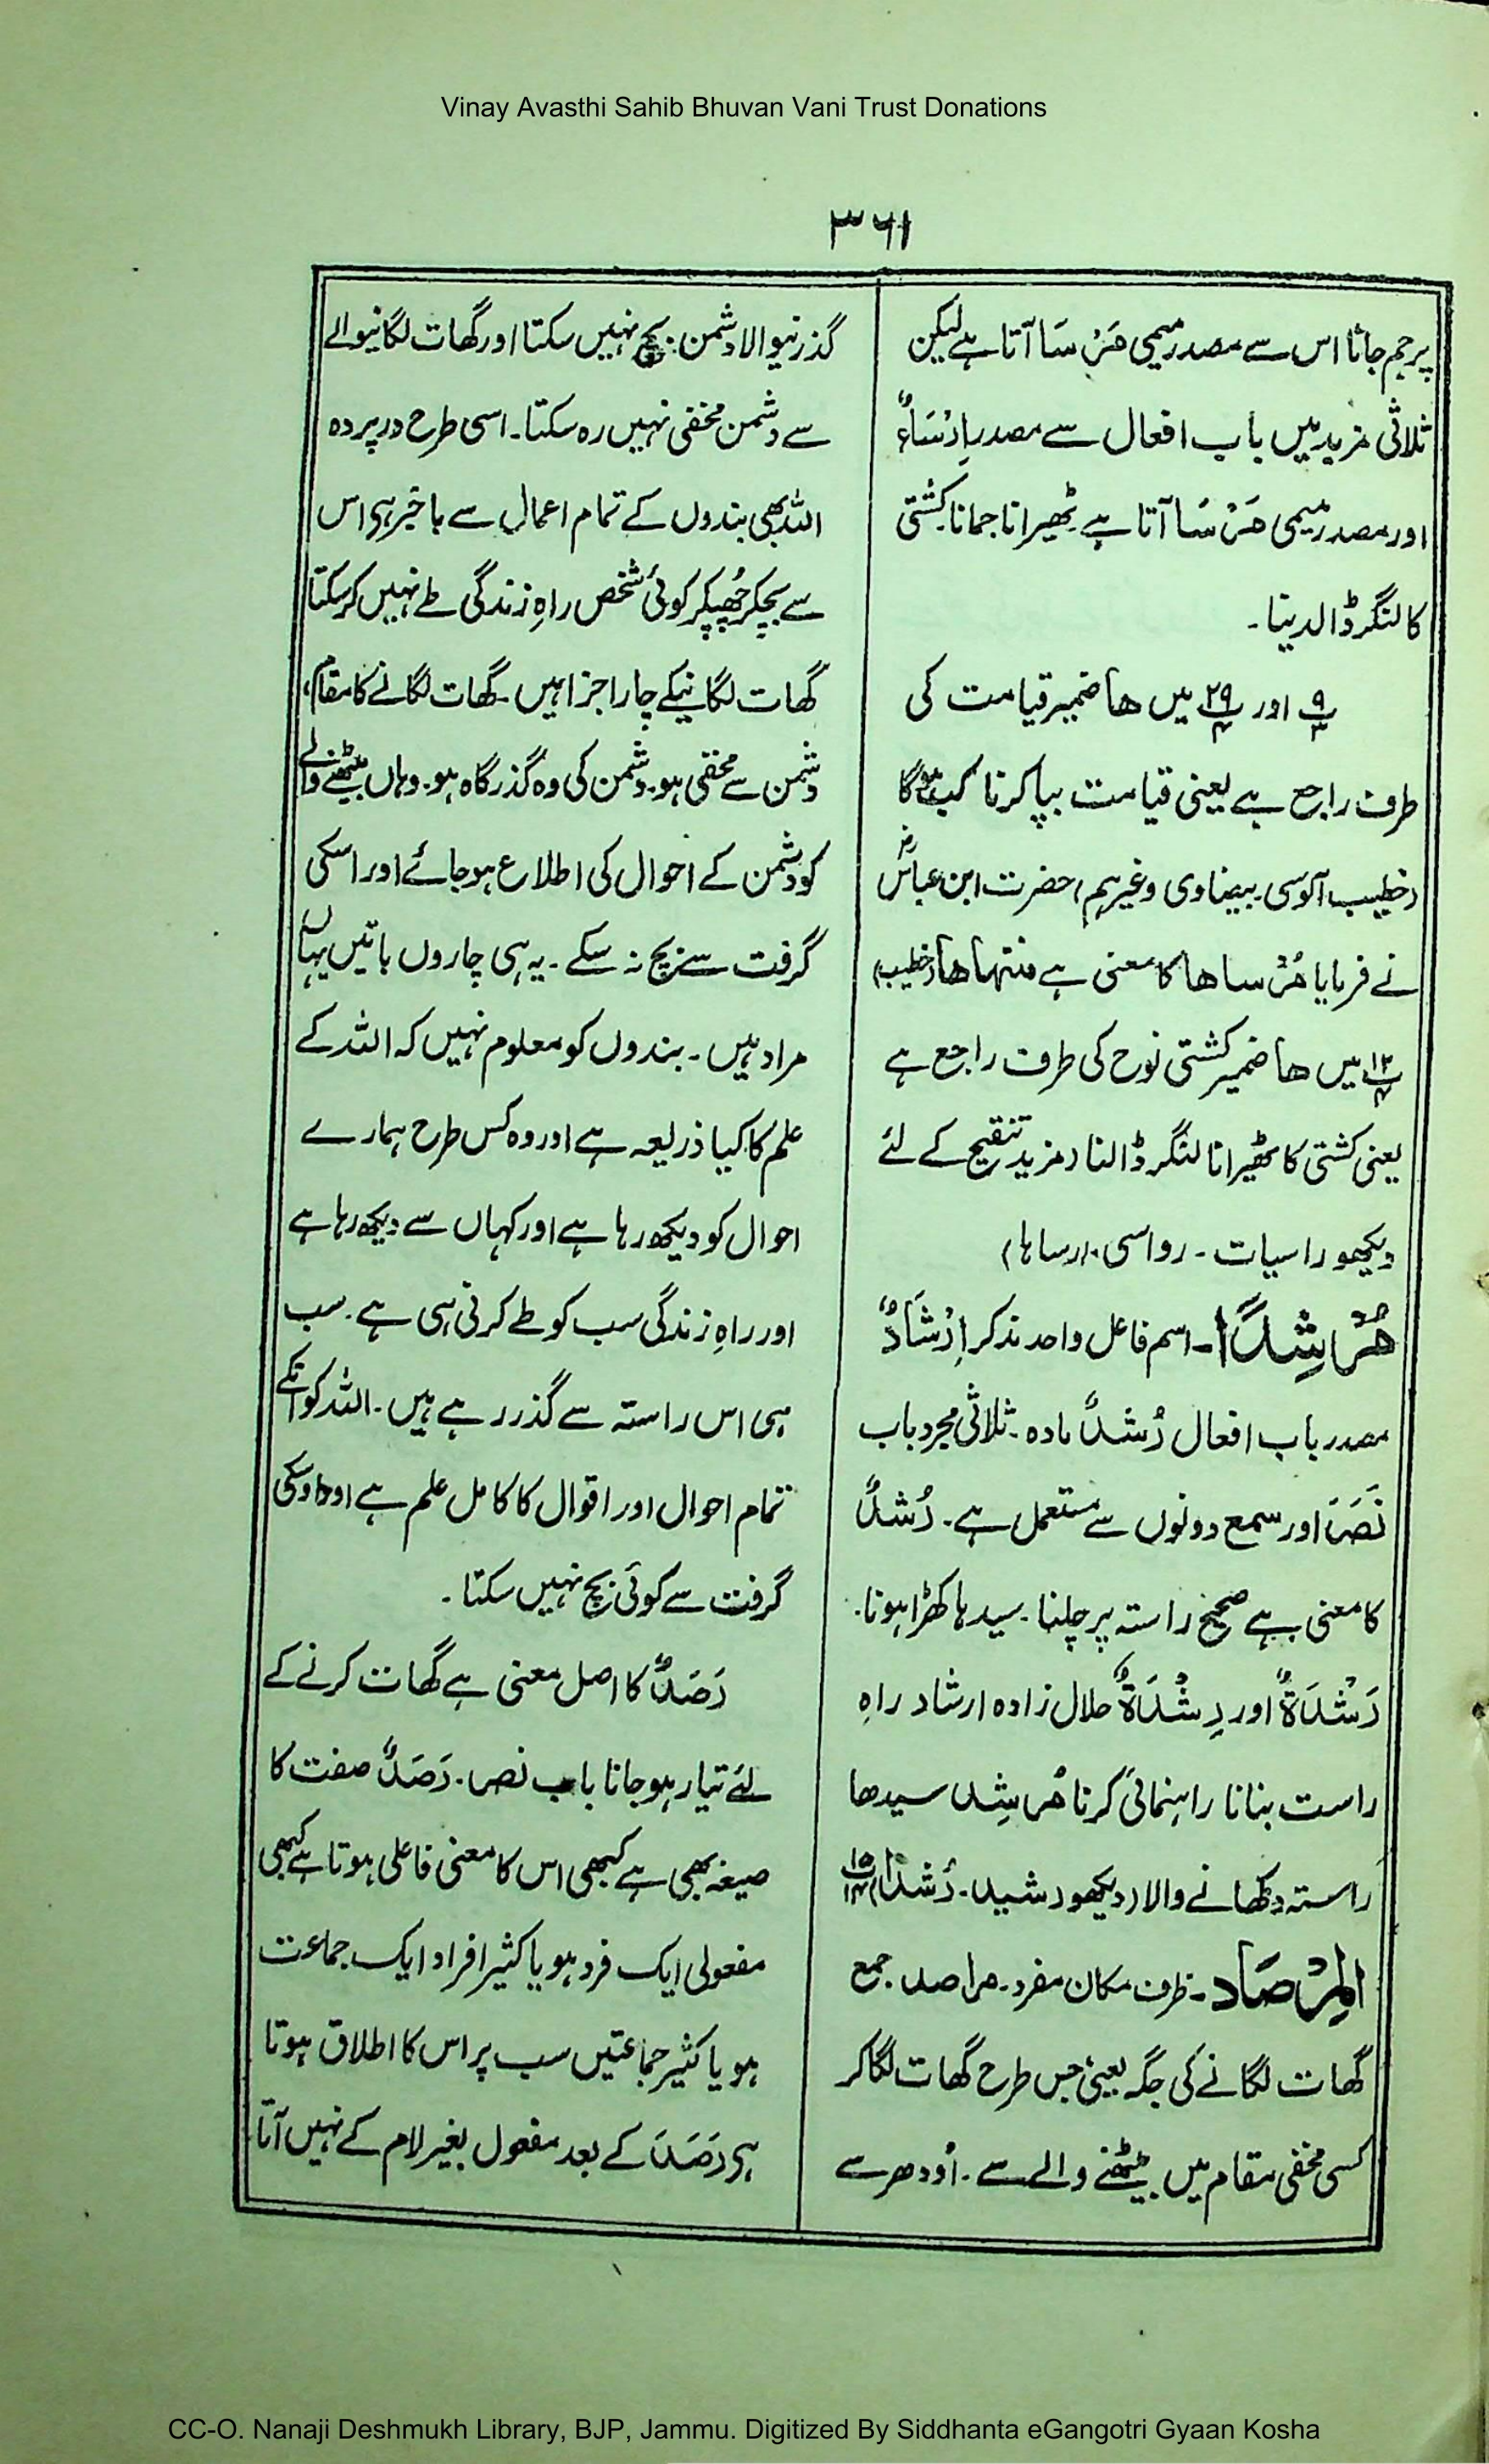 Vinay Avasthi Sahib Bhuvan Vani Trust Donations
۳۶۱
پر جم جانا اس سے مصدر میمی مَرْسَا آتا ہے لیکن
ثلاثی مزید میں باب افعال سے مصدر اِرْسَاءٌ
اور مصدر میمی مُرْسَا آتا ہے ٹھیرانا جمانا کشتی
کا لنگر ڈالدینا۔
۹/۳ اور ۲۹/۴ میں ھا ضمیر قیامت کی
طرف راجع ہے یعنی قیامت بپا کرنا کب ہوگا
(خطیب آلوسی۔ بیضاوی وغیرہم) حضرت ابن عباسؓ
نے فرمایا مُرْساھا کا معنی ہے منتہاھا (خطیب)
۱۲/۴ میں ھا ضمیر کشتی نوح کی طرف راجع ہے
یعنی کشتی کا ٹھیرانا لنگر ڈالنا (مزید تنقیح کے لئے
دیکھو راسیات۔ رواسی۔ ارساہا)
مُرْشِدًا۔ اسم فاعل واحد مذکر اِرْشَادٌ
مصدر باب افعال رُشْدٌ مادہ۔ ثلاثی مجرد باب
نَصَرَ اور سمع دونوں سے مستعمل ہے۔ رُشْدٌ
کا معنی ہے صحیح راستہ پر چلنا۔ سیدہا کھڑا ہونا۔
رَشْدَةٌ اور رِشْدَةٌ حلال زادہ ارشاد راہِ
راست بنانا راہنمائی کرنا مُرشِد سیدھا
راستہ دکھانے والا (دیکھو رشید۔ رُشدًا) ۱۵/۱۴
المِرْصَاد۔ ظرف مکان مفرد۔ مراصد جمع
گھات لگانے کی جگہ یعنی جس طرح گھات لگاکر
کسی مخفی مقام میں بیٹھنے والے سے۔ اودھر سے
گذرنیوالا دشمن بچ نہیں سکتا اور گھات لگانیوالے
سے دشمن مخفی نہیں رہ سکتا۔ اسی طرح در پردہ
اللہ بھی بندوں کے تمام اعمال سے باخبر ہی اس
سے بچکر چُھپکر کوئی شخص راہِ زندگی طے نہیں کرسکتا
گھات لگانیکے چار اجزا ہیں۔ گھات لگانے کا مقام،
دشمن سے مخفی ہو۔ دشمن کی وہ گذرگاہ ہو۔ وہاں بیٹھنے والے
کو دشمن کے احوال کی اطلاع ہوجائے اور اسکی
گرفت سے بچ نہ سکے۔ یہ ہی چاروں باتیں یہاں
مراد ہیں۔ بندوں کو معلوم نہیں کہ اللہ کے
علم کا کیا ذریعہ ہے اور وہ کس طرح ہمارے
احوال کو دیکھ رہا ہے اور کہاں سے دیکھ رہا ہے
اور راہِ زندگی سب کو طے کرنی ہی ہے۔ سب
ہی اس راستہ سے گذر رہے ہیں۔ اللہ کو انکے
تمام احوال اور اقوال کا کامل علم ہے اور اوسکی
گرفت سے کوئی بچ نہیں سکتا۔
رَصَدٌ کا اصل معنی ہے گھات کرنے کے
لئے تیار ہوجانا باب نصر۔ رَصَدٌ صفت کا
صیغہ بھی ہے کبھی اس کا معنی فاعلی ہوتا ہے کبھی
مفعولی ایک فرد ہو یا کثیر افراد ایک جماعت
ہو یا کثیر جماعتیں سب پر اس کا اطلاق ہوتا
ہی رَصَدَ کے بعد مفعول بغیر لام کے نہیں آتا
CC-O. Nanaji Deshmukh Library, BJP, Jammu. Digitized By Siddhanta eGangotri Gyaan Kosha